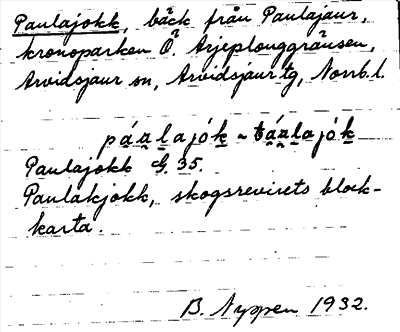 Paulajokk, bäck från Paulajaur,
kronoparken Ö. Arjeplouggränsen,
Arvidsjaur sn, Arvidsjaur tg, Norrb. l.
Paulajokk G. 35.
Paulakjokk, skogsrevirets block-
karta.
B. Nyppen 1932.